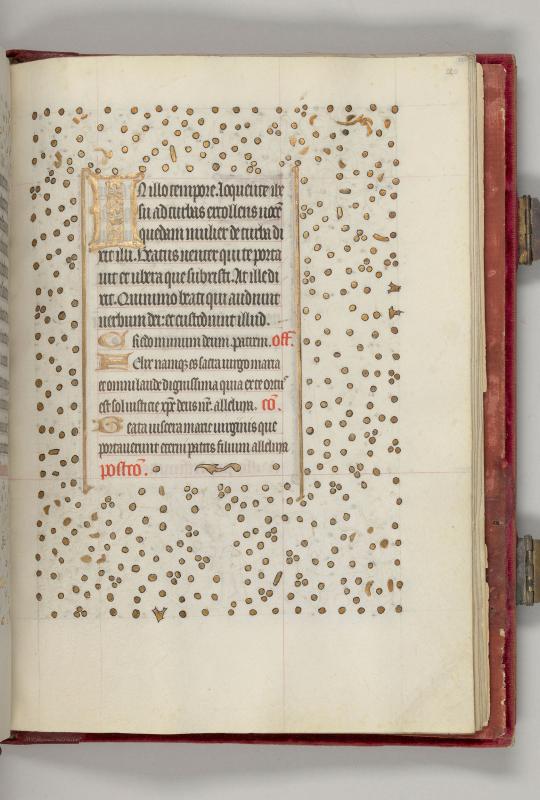 In illo tempore. loquente ihe
su ad turbas extollens uocem
quedam mulier de turba di
xit illi. Beatus uenter qui te porta
uit et ubera que suxisti. At ille di
xit. Quinimo beati qui audiunt
uerbum dei: et custodiunt illud.
Credo in unum deum. patrem. off.
Felix namqz es sacra uirgo maria
et omni laude dignissima quia ex te ortus
est sol iusticie xpc deus nr. alleluya. co.
Beata uiscera marie uirginis que
portauerunt eterni patris filium alleluya
postco.